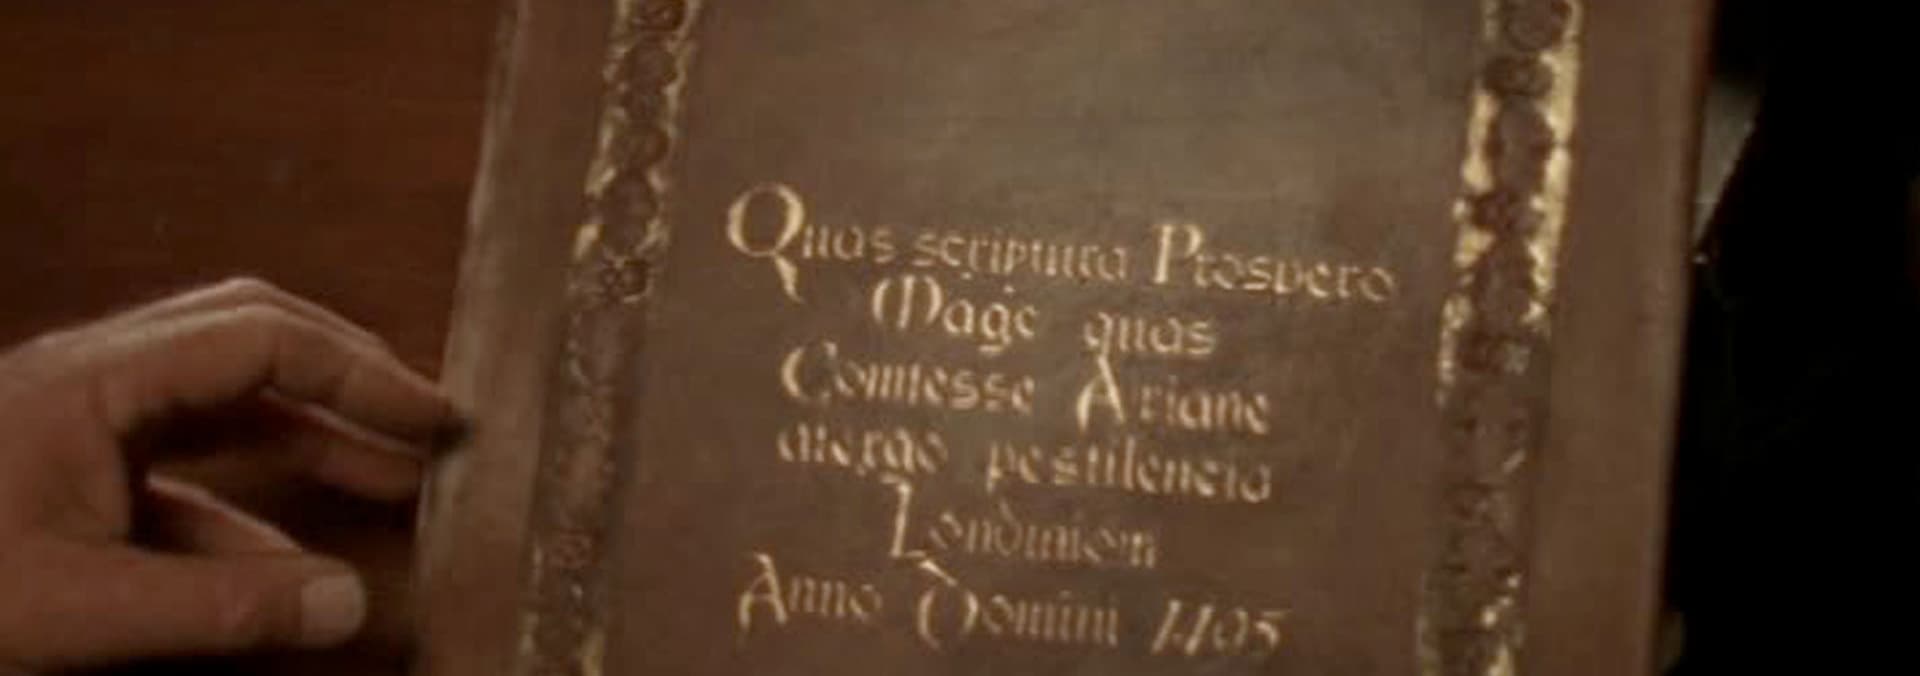 Quas scriptura Prospero
Mage quas
Comtesse Ariane
atergo pestilencia
Londiniom
Anno Domini 1405